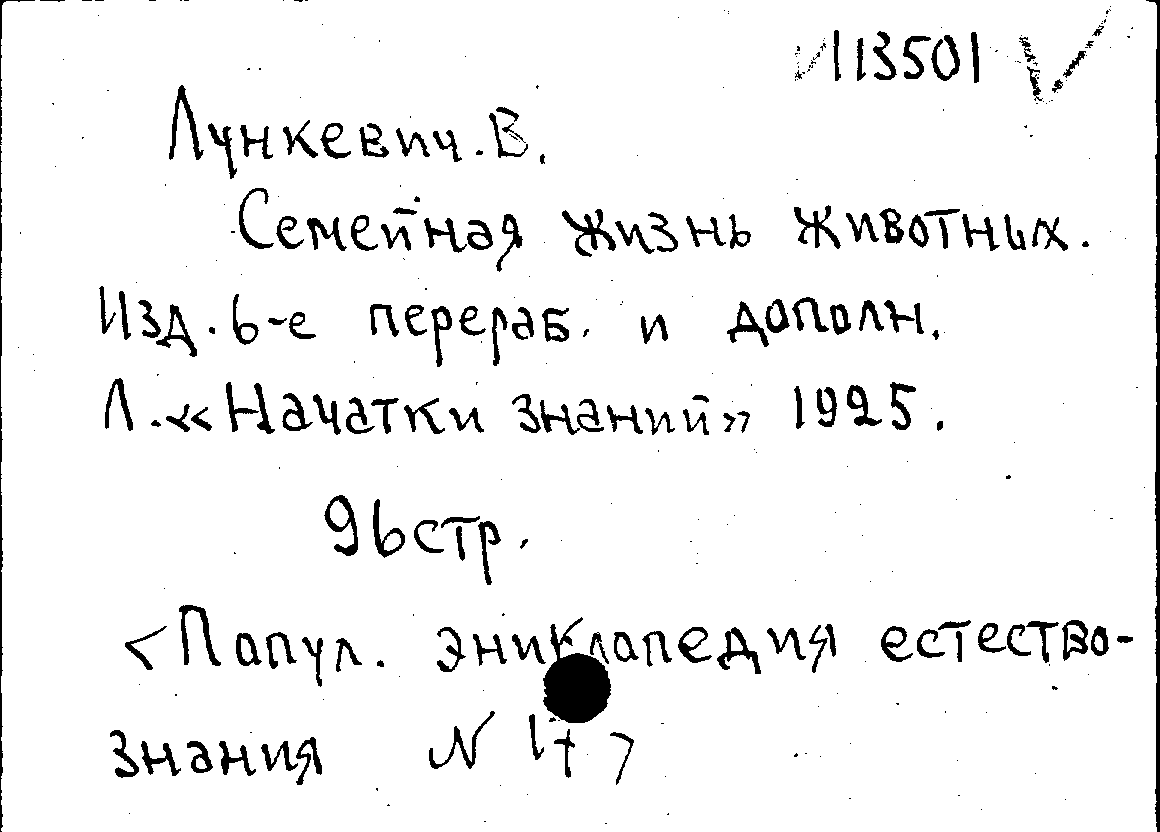 113501
Лункевич. В.
Семейная жизнь животных.
Изд. 6-е перераб. и дополн.
Л. «Начатки знаний» 1925.
96 стр.
<Папул. эниклапедия естество-
знания N 17>